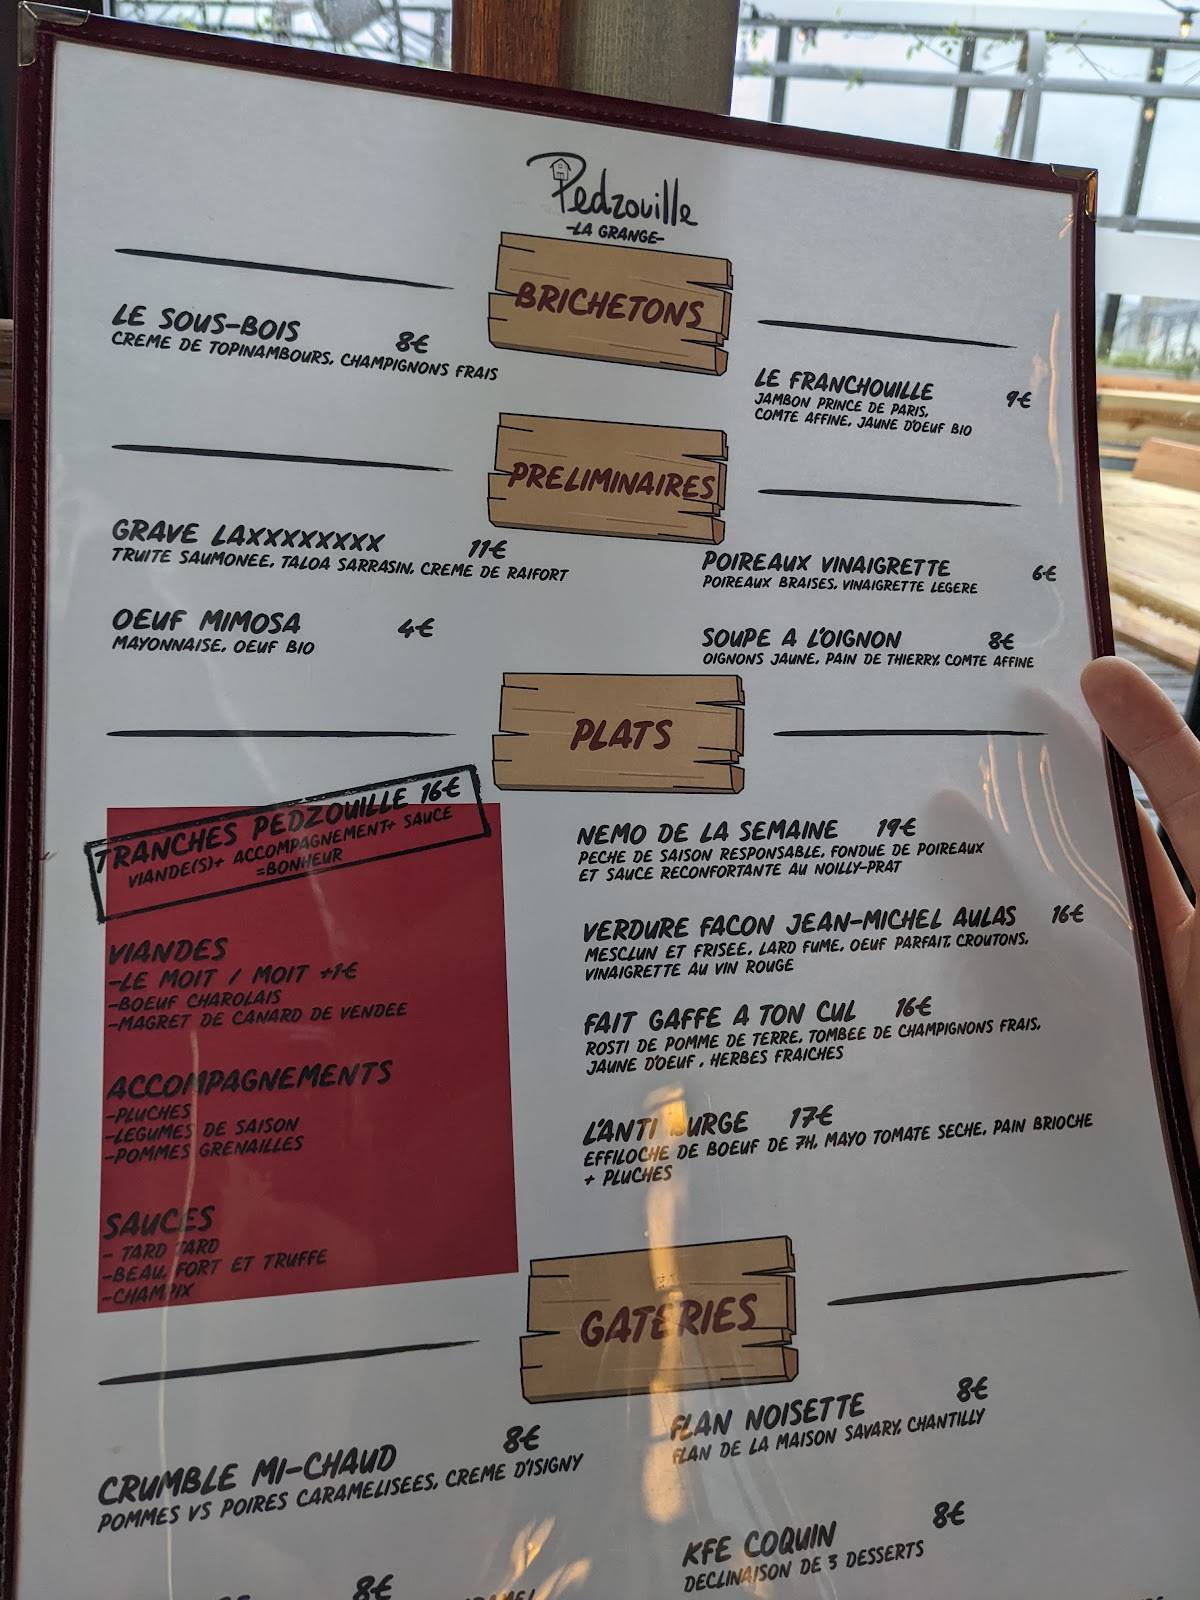 Pedzouille
-LA GRANGE-
BRICHETONS
LE SOUS-BOIS 8€
CREME DE TOPINAMBOURS, CHAMPIGNONS FRAIS
LE FRANCHOUILLE 9€
JAMBON PRINCE DE PARIS,
COMTE AFFINE, JAUNE D'OEUF BIO
PRELIMINAIRES
GRAVE LAXXXXXXXX 11€
TRUITE SAUMONEE, TALOA SARRASIN, CREME DE RAIFORT
OEUF MIMOSA 4€
MAYONNAISE, OEUF BIO
POIREAUX VINAIGRETTE 6€
POIREAUX BRAISES, VINAIGRETTE LEGERE
SOUPE A L'OIGNON 8€
OIGNONS JAUNE, PAIN DE THIERRY, COMTE AFFINE
PLATS
TRANCHES PEDZOUILLE 16€
VIANDE(S)+ ACCOMPAGNEMENT+ SAUCE
=BONHEUR
VIANDES
-LE MOIT / MOIT +1€
-BOEUF CHAROLAIS
-MAGRET DE CANARD DE VENDEE
ACCOMPAGNEMENTS
-PLUCHES
-LEGUMES DE SAISON
-POMMES GRENAILLES
SAUCES
- TARD TARD
-BEAU, FORT ET TRUFFE
-CHAMPIX
NEMO DE LA SEMAINE 19€
PECHE DE SAISON RESPONSABLE, FONDUE DE POIREAUX
ET SAUCE RECONFORTANTE AU NOILLY-PRAT
VERDURE FACON JEAN-MICHEL AULAS 16€
MESCLUN ET FRISEE, LARD FUME, OEUF PARFAIT, CROUTONS,
VINAIGRETTE AU VIN ROUGE
FAIT GAFFE A TON CUL 16€
ROSTI DE POMME DE TERRE, TOMBEE DE CHAMPIGNONS FRAIS,
JAUNE D'OEUF , HERBES FRAICHES
L'ANTI BURGE 17€
EFFILOCHE DE BOEUF DE 7H, MAYO TOMATE SECHE, PAIN BRIOCHE
+ PLUCHES
GATERIES
CRUMBLE MI-CHAUD 8€
POMMES VS POIRES CARAMELISEES, CREME D'ISIGNY
FLAN NOISETTE 8€
FLAN DE LA MAISON SAVARY, CHANTILLY
KFE COQUIN 8€
DECLINAISON DE 3 DESSERTS
8€